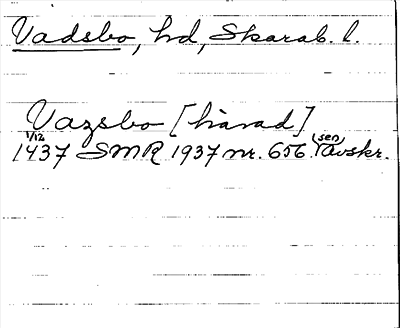 Vadsbo, hd, Skarab. l.
Vazsbo [härad]
1/12
1437 SMR 1937 nr. 656. (sen) Avskr.